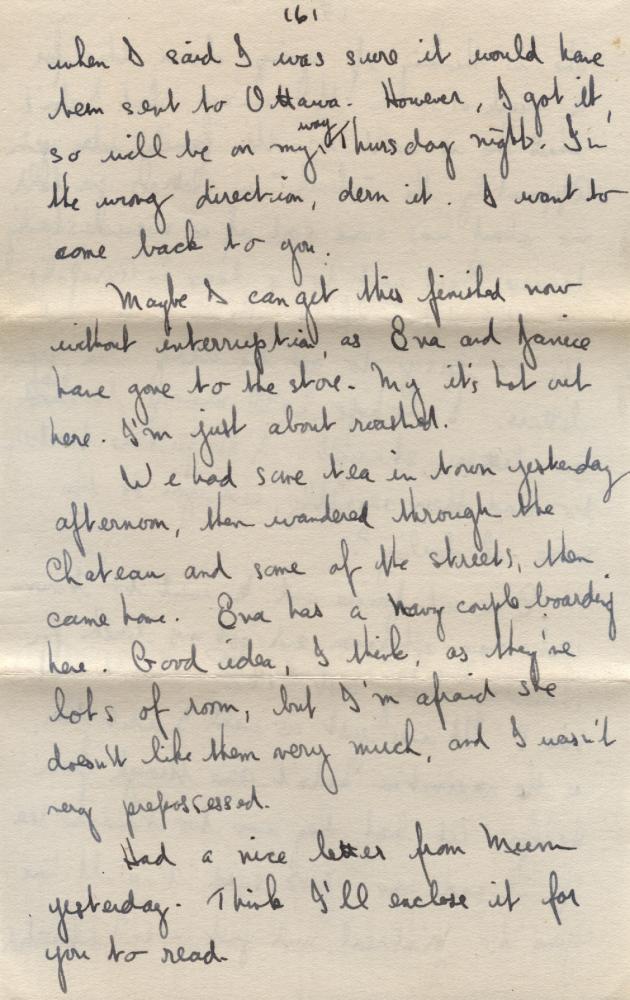 (6)
when I said I was sure it would have
been sent to Ottawa. However, I got it,
so will be on my way Thursday night. In
the wrong direction, dern it. I want to
come back to you.
Maybe I can get this finished now
without interruption, as Eva and Janice
have gone to the store. My it's hot out
here. I'm just about roasted.
We had some tea in town yesterday
afternoon, then wandered through the
Chateau and some of the streets, then
came home. Eva has a Navy couple boarding
here. Good idea, I think, as they've
lots of room, but I'm afraid she
doesn't like them very much, and I wasn't
very prepossessed.
Had a nice letter from Mum
yesterday. Think I'll enclose it for
you to read.